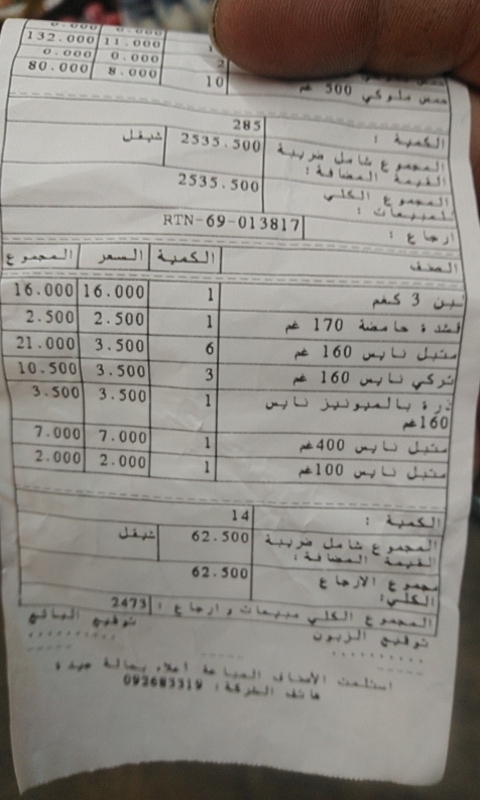 132.000 11.000 1
0.000 0.000 2
حمص ملوكي 500 غم 10 8.000 80.000
الكمية : 285
المجموع شامل ضريبة 2535.500 شيقل
القيمة المضافة :
المجموع الكلي 2535.500
للمبيعات :
ارجاع : RTN-69-013817
الصنف الكمية السعر المجموع
لبن 3 كغم 1 16.000 16.000
قشدة حامضة 170 غم 1 2.500 2.500
متبل نايس 160 غم 6 3.500 21.000
تركي نايس 160 غم 3 3.500 10.500
ذرة بالميونيز نايس 1 3.500 3.500
160غم
متبل نايس 400غم 1 7.000 7.000
متبل نايس 100غم 1 2.000 2.000
الكمية : 14
المجموع شامل ضريبة 62.500 شيقل
القيمة المضافة :
مجموع الارجاع 62.500
الكلي:
المجموع الكلي مبيعات وارجاع : 2473
توقيع الزبون توقيع البائع
استلمت الأصناف المباعة أعلاه بحالة جيدة
هاتف الشركة: 092683319